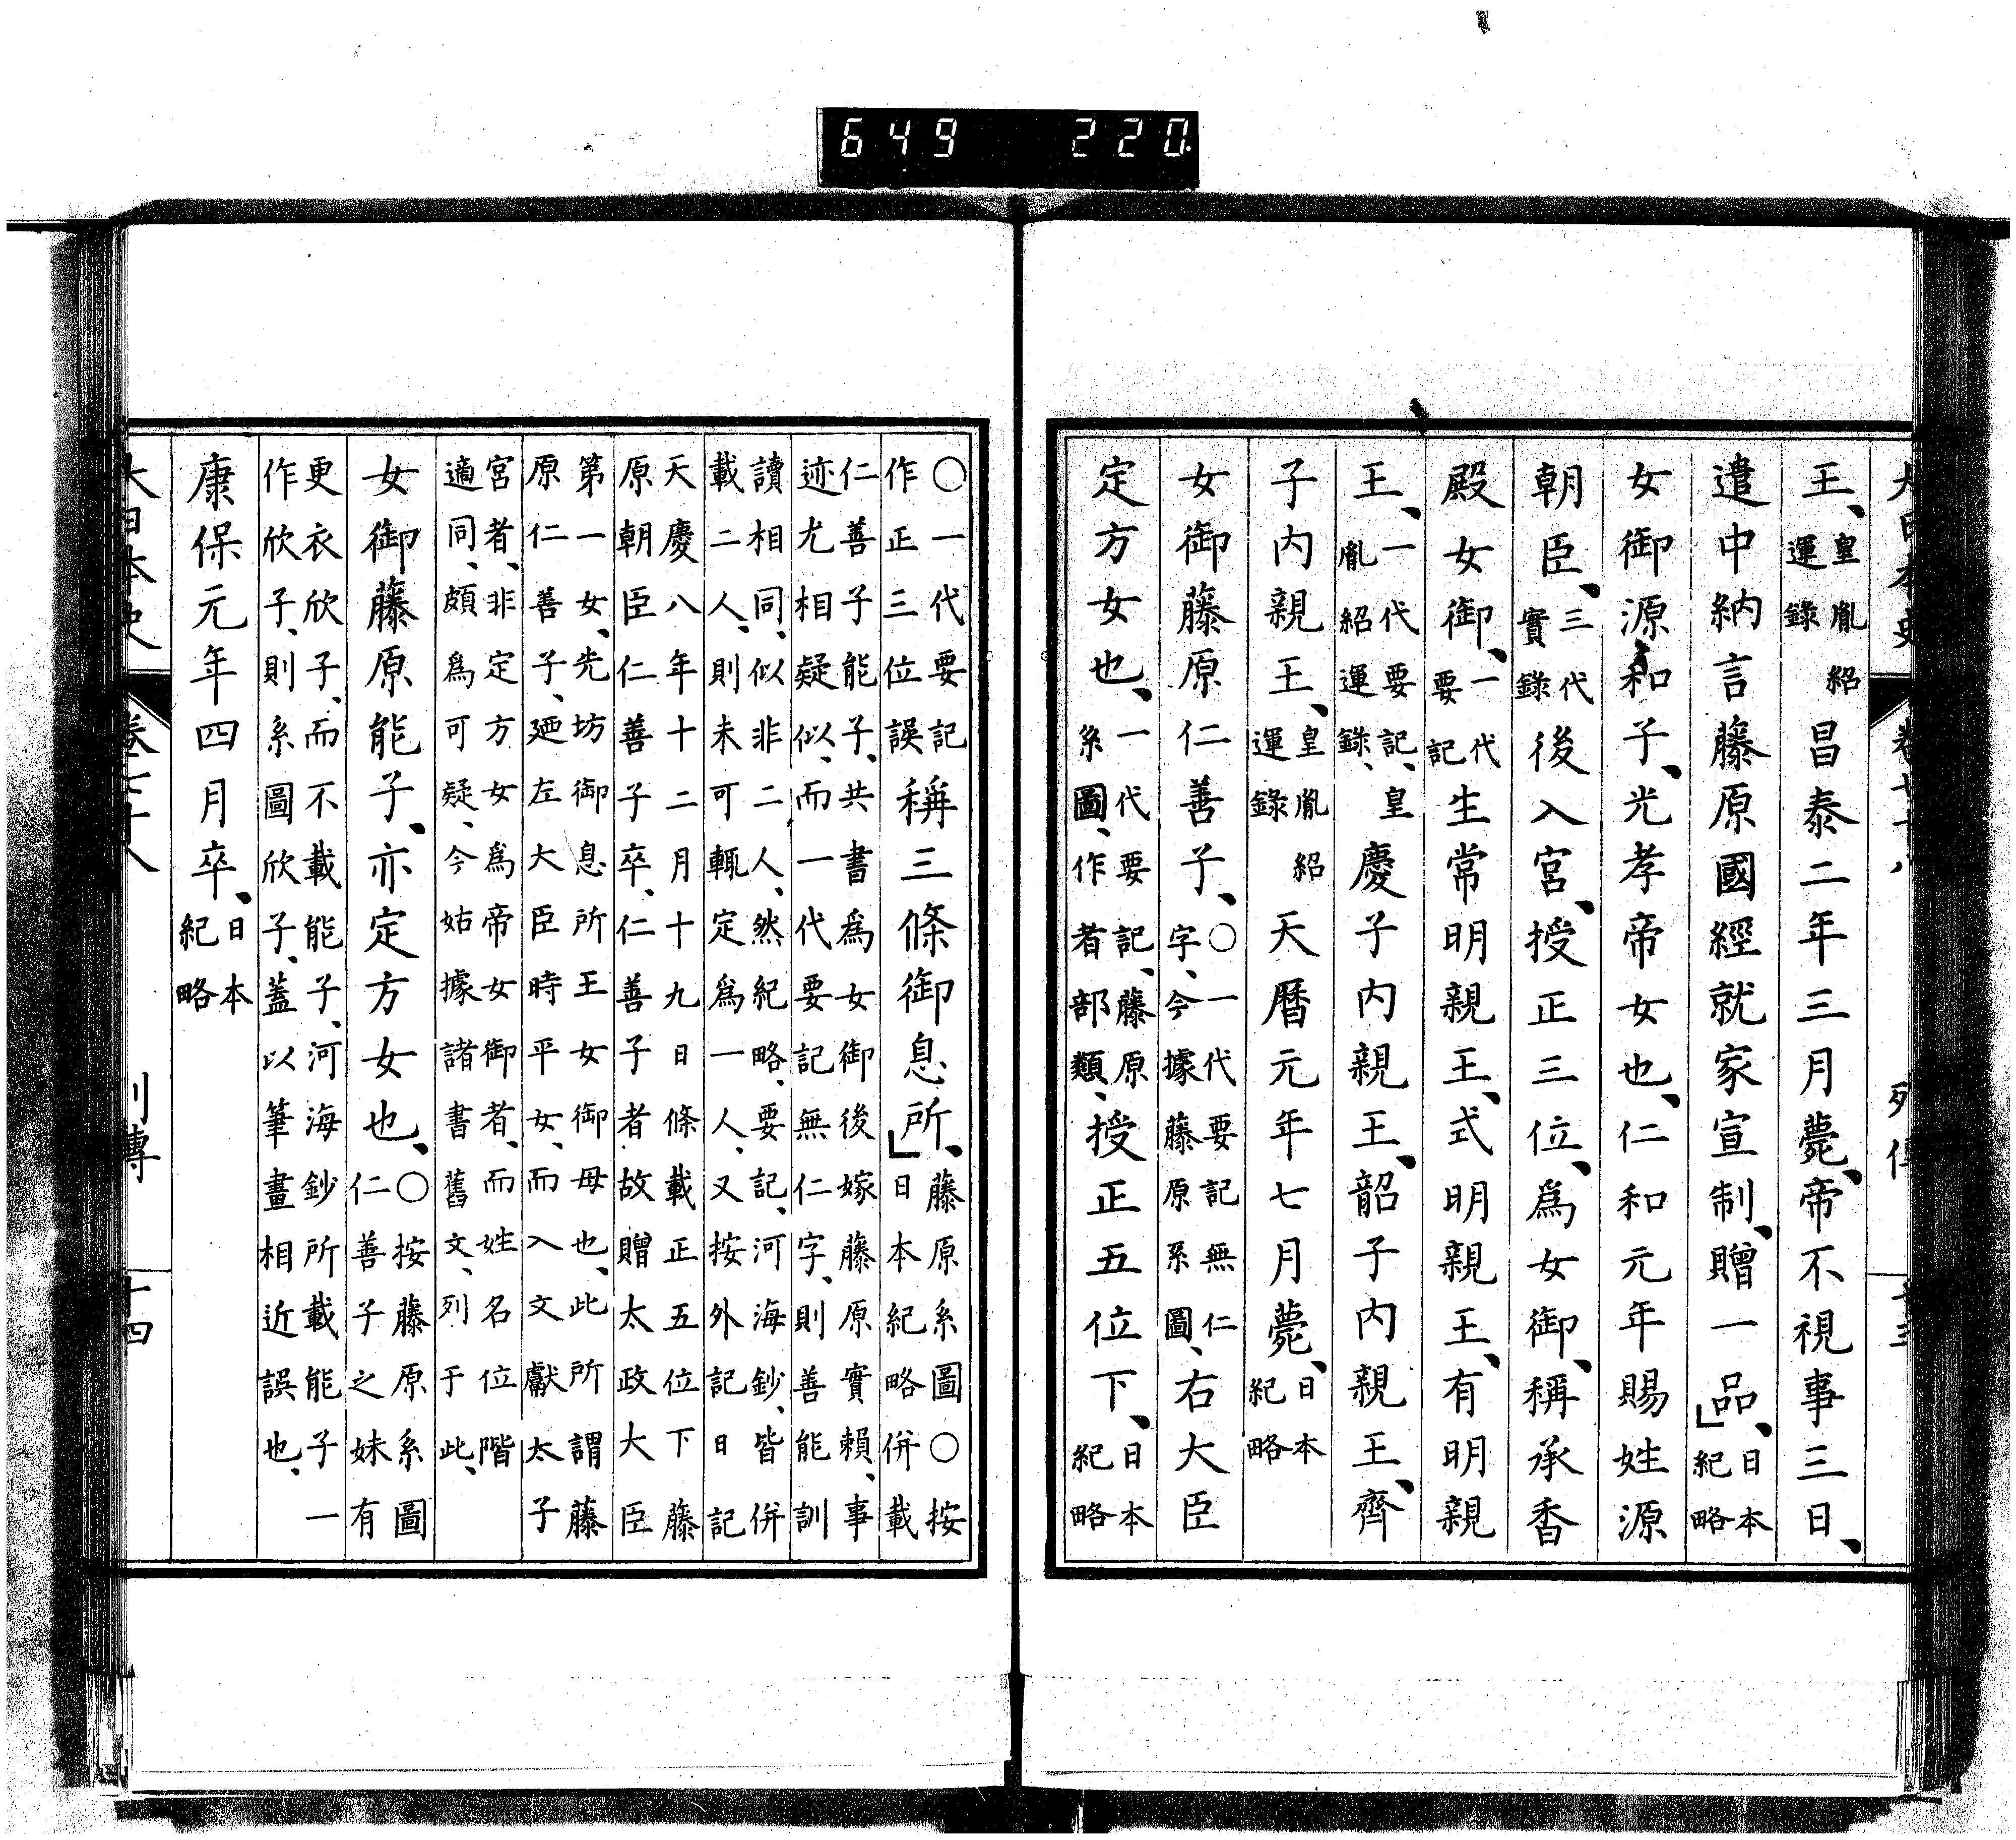 649 220.
大日本史 卷七十八 列傳 十三
王、皇胤紹運錄昌泰二年三月薨、帝不視事三日、
遣中納言藤原國經就家宣制、贈一品、」日本紀略
女御源和子、光孝帝女也、仁和元年賜姓源
朝臣、三代實錄後入宮、授正三位、爲女御、稱承香
殿女御、一代要記生常明親王、式明親王、有明親
王、一代要記、皇胤紹運錄、慶子内親王、韶子内親王、齊
子内親王、皇胤紹運錄天曆元年七月薨、日本紀略
女御藤原仁善子、○一代要記無仁字、今據藤原系圖、右大臣
定方女也、一代要記、藤原系圖、作者部類、授正五位下、日本紀略
○一代要記作正三位誤稱三條御息所、」藤原系圖○按日本紀略併載
仁善子能子、共書爲女御後嫁藤原實賴、事
迹尤相疑似、而一代要記無仁字、則善能訓
讀相同、似非二人、然紀略、要記、河海鈔、皆併
載二人、則未可輒定爲一人、又按外記日記
天慶八年十二月十九日條載正五位下藤
原朝臣仁善子卒、仁善子者故贈太政大臣
第一女、先坊御息所王女御母也、此所謂藤
原仁善子、廼左大臣時平女、而入文獻太子
宮者、非定方女爲帝女御者、而姓名位階
適同、頗爲可疑、今姑據諸書舊文、列于此、
女御藤原能子、亦定方女也、○按藤原系圖仁善子之妹有
更衣欣子、而不載能子、河海鈔所載能子一
作欣子、則系圖欣子、蓋以筆畫相近誤也、
康保元年四月卒、日本紀略
大日本史 卷七十八 列傳 十四